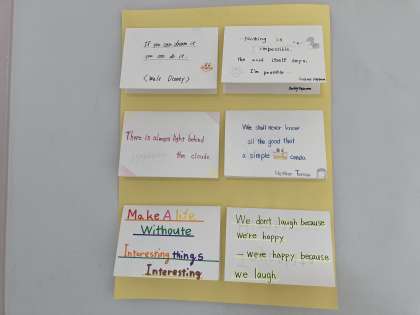 If you can dream it
you can do it.
(Walt Disney)
Nothing is
impossible.
The word itself says,
I'm possible
There is always light behind
the clouds
We shall never know
all the good that
a simple smile cando.
Mother Teresa
Make A life
Withoute
Interesting things
Interesting
We don't laugh because
we're happy
— we're happy because
we laugh